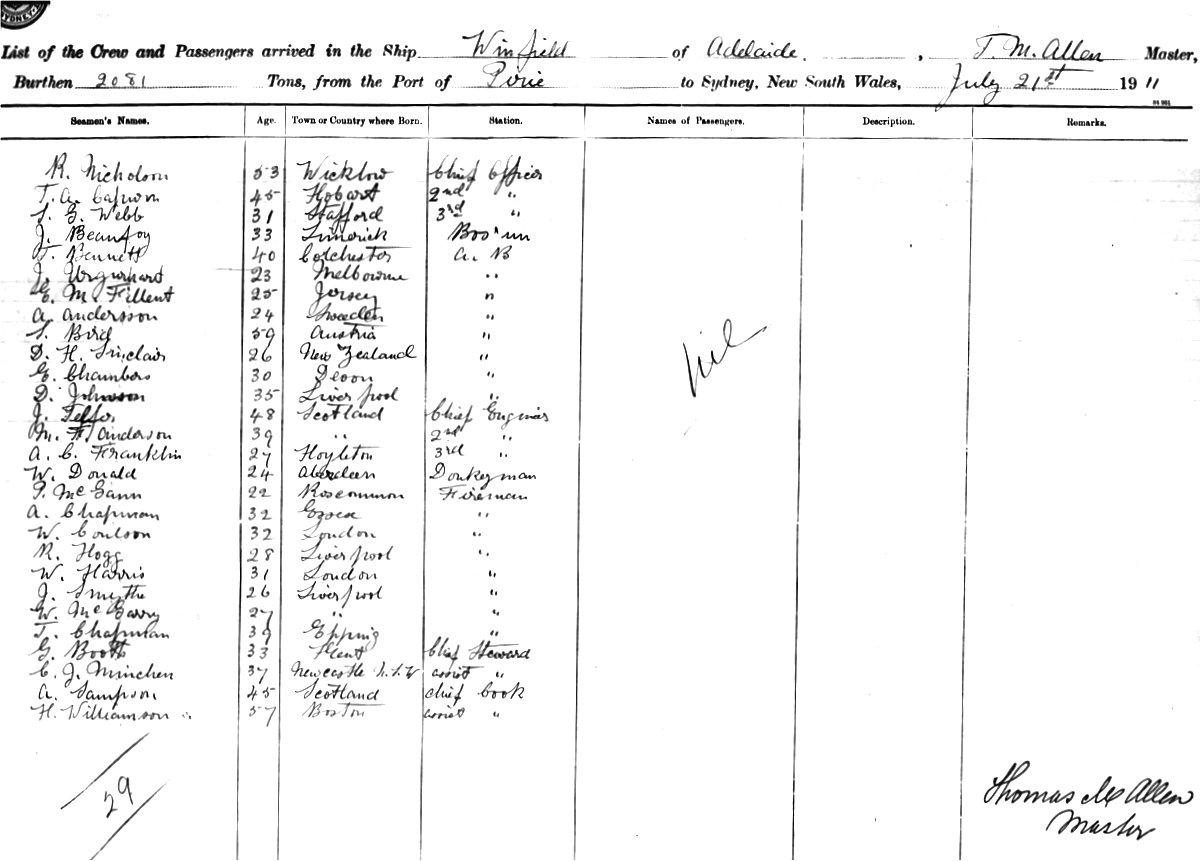 SYDNEY
List of the Crew and Passengers arrived in the Ship Winfield of Adelaide, T. M. Allen Master,
Burthen 2081 Tons, from the Port of Pirie to Sydney, New South Wales, July 21st 1911
Seamen's Names. Age. Town or Country where Born. Station. Names of Passengers. Description. Remarks.
R. Nicholson 53 Wicklow Chief Officer
T. A. 45 Hobart 2nd "
S. G. Webb 31 Stafford 3rd "
J. Beaufoy 33 Limerick Bos'un
J. Bennett 40 Colchester A. B
J. Urquhart 23 Melbourne "
E. M. Fillent 25 Jersey "
A. Andersson 24 Sweden "
S. Bird 59 Austria "
D. H. Sinclair 26 New Zealand "
E. Chambers 30 Devon "
D. Johnson 35 Liverpool "
J. Telfer 48 Scotland Chief Engineer
M. F. Anderson 39 " 2nd "
A. C. Franklin 27 Hoyleton 3rd "
W. Donald 24 Aberdeen Donkeyman
P. McGann 22 Roscommon Fireman
A. Chapman 32 Essex "
W. Coulson 32 London "
R. Hogg 28 Liverpool "
W. Harris 31 London "
J. Smythe 26 Liverpool "
W. McGarry 27 " "
T. Chapman 39 Epping "
G. Booth 33 Kent Chief Steward
C. J. Minchen 37 Newcastle N.S.W assist "
A. Sampson 45 Scotland chief Cook
H. Williamson 57 Boston assist "
nil
29
Thomas M Allen
Master